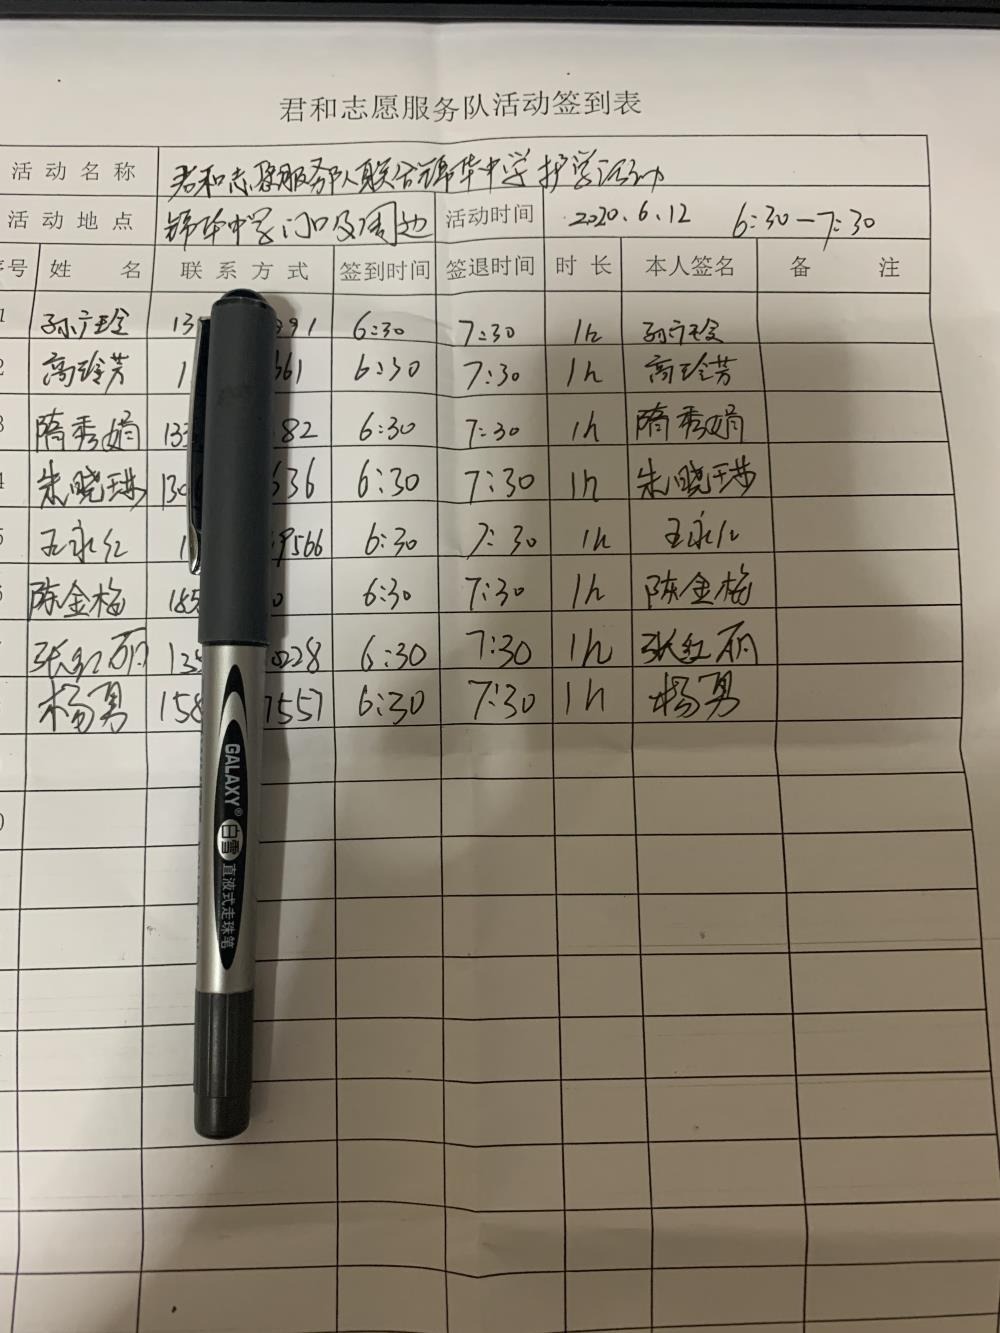 君和志愿服务队活动签到表
活动名称 君和志愿服务队联合锦华中学护学活动
活动地点 锦华中学门口及周边 活动时间 2020.6.12 6:30—7:30
序号 姓 名 联系方式 签到时间 签退时间 时长 本人签名 备 注
1 孙广玲 13 391 6:30 7:30 1h 孙广玲
2 高玲芳 1 661 6:30 7:30 1h 高玲芳
3 隋秀娟 133 82 6:30 7:30 1h 隋秀娟
4 朱晓琳 130 636 6:30 7:30 1h 朱晓琳
5 王永红 1 9566 6:30 7:30 1h 王永红
陈金梅 185 0 6:30 7:30 1h 陈金梅
张红丽 135 0228 6:30 7:30 1h 张红丽
杨勇 158 7557 6:30 7:30 1h 杨勇
0
GALAXY® 白雪 直液式走珠笔